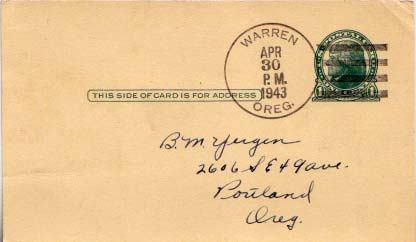 WARREN
APR
30
P.M.
1943
OREG.
THIS SIDE OF CARD IS FOR ADDRESS
B.M. Yergen
2606 S E 49 ave.
Portland
Oreg.